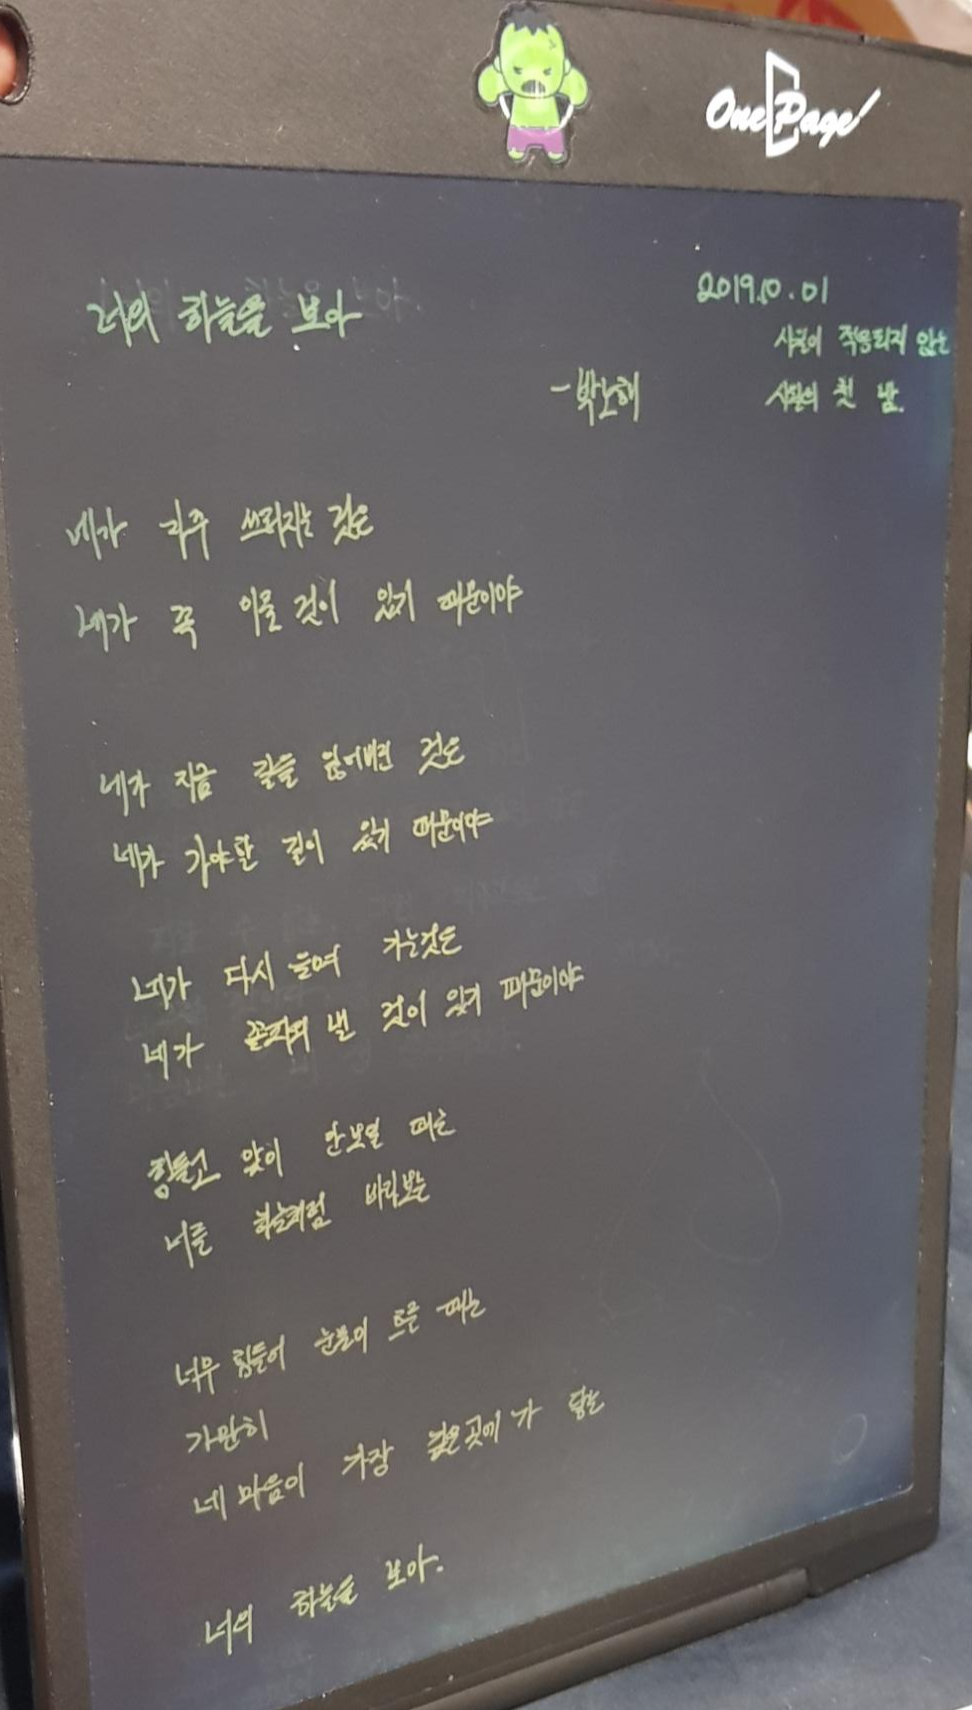 One Page
너의 하늘을 보아
2019.10.01
시월이 적응되지 않는
시월의 첫 밤.
- 박노해
네가 자주 쓰러지는 것은
네가 꼭 이룰 것이 있기 때문이야
네가 지금 길을 잃어버린 것은
네가 가야할 길이 있기 때문이야
네가 다시 울며 가는것은
네가 꽃피워 낼 것이 있기 때문이야
힘들고 앞이 안보일 때는
너를 하늘처럼 바라보는
너무 힘들어 눈물이 흐를 때는
가만히
네 마음이 가장 깊은곳에 가 닿는
너의 하늘을 보아.